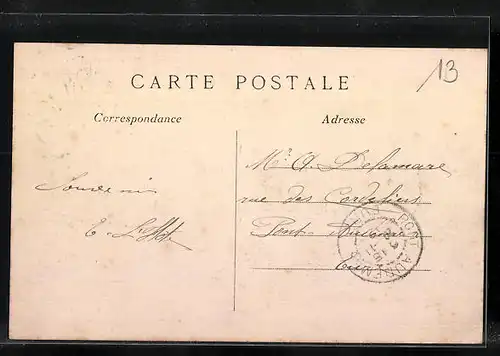 13
CARTE POSTALE
Correspondance
Adresse
Souvenir
Mr. A. Delamare
rue des Cordeliers
Pont-Audemer
Eure
PONT-AUDEMER